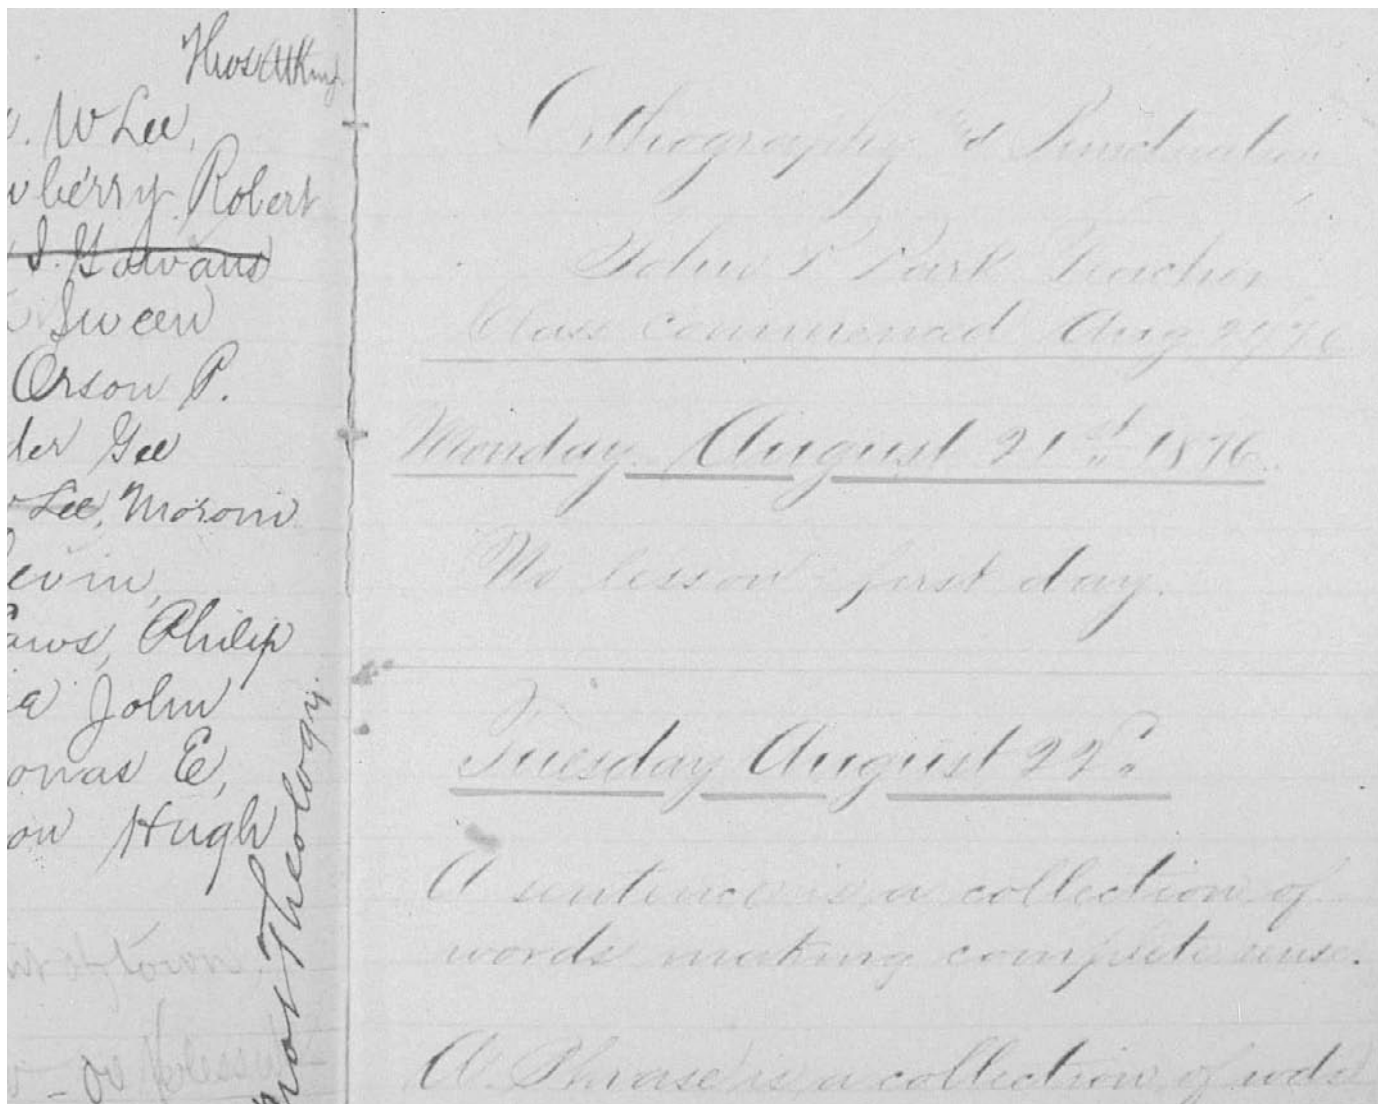 W Lee,
berry Robert
S. Gowans
Sween
Orson P.
der Gee
Lee, Moroni
evin,
aws, Philip
a John
omas E,
on Hugh
Theology.
Orthography & Punctuation
John R Park Teacher
Class commenced Aug 76
Monday August 21st 1876.
No lesson first day.
Tuesday August 22d
A sentence is a collection of
words making complete sense.
A Phrase is a collection of wds